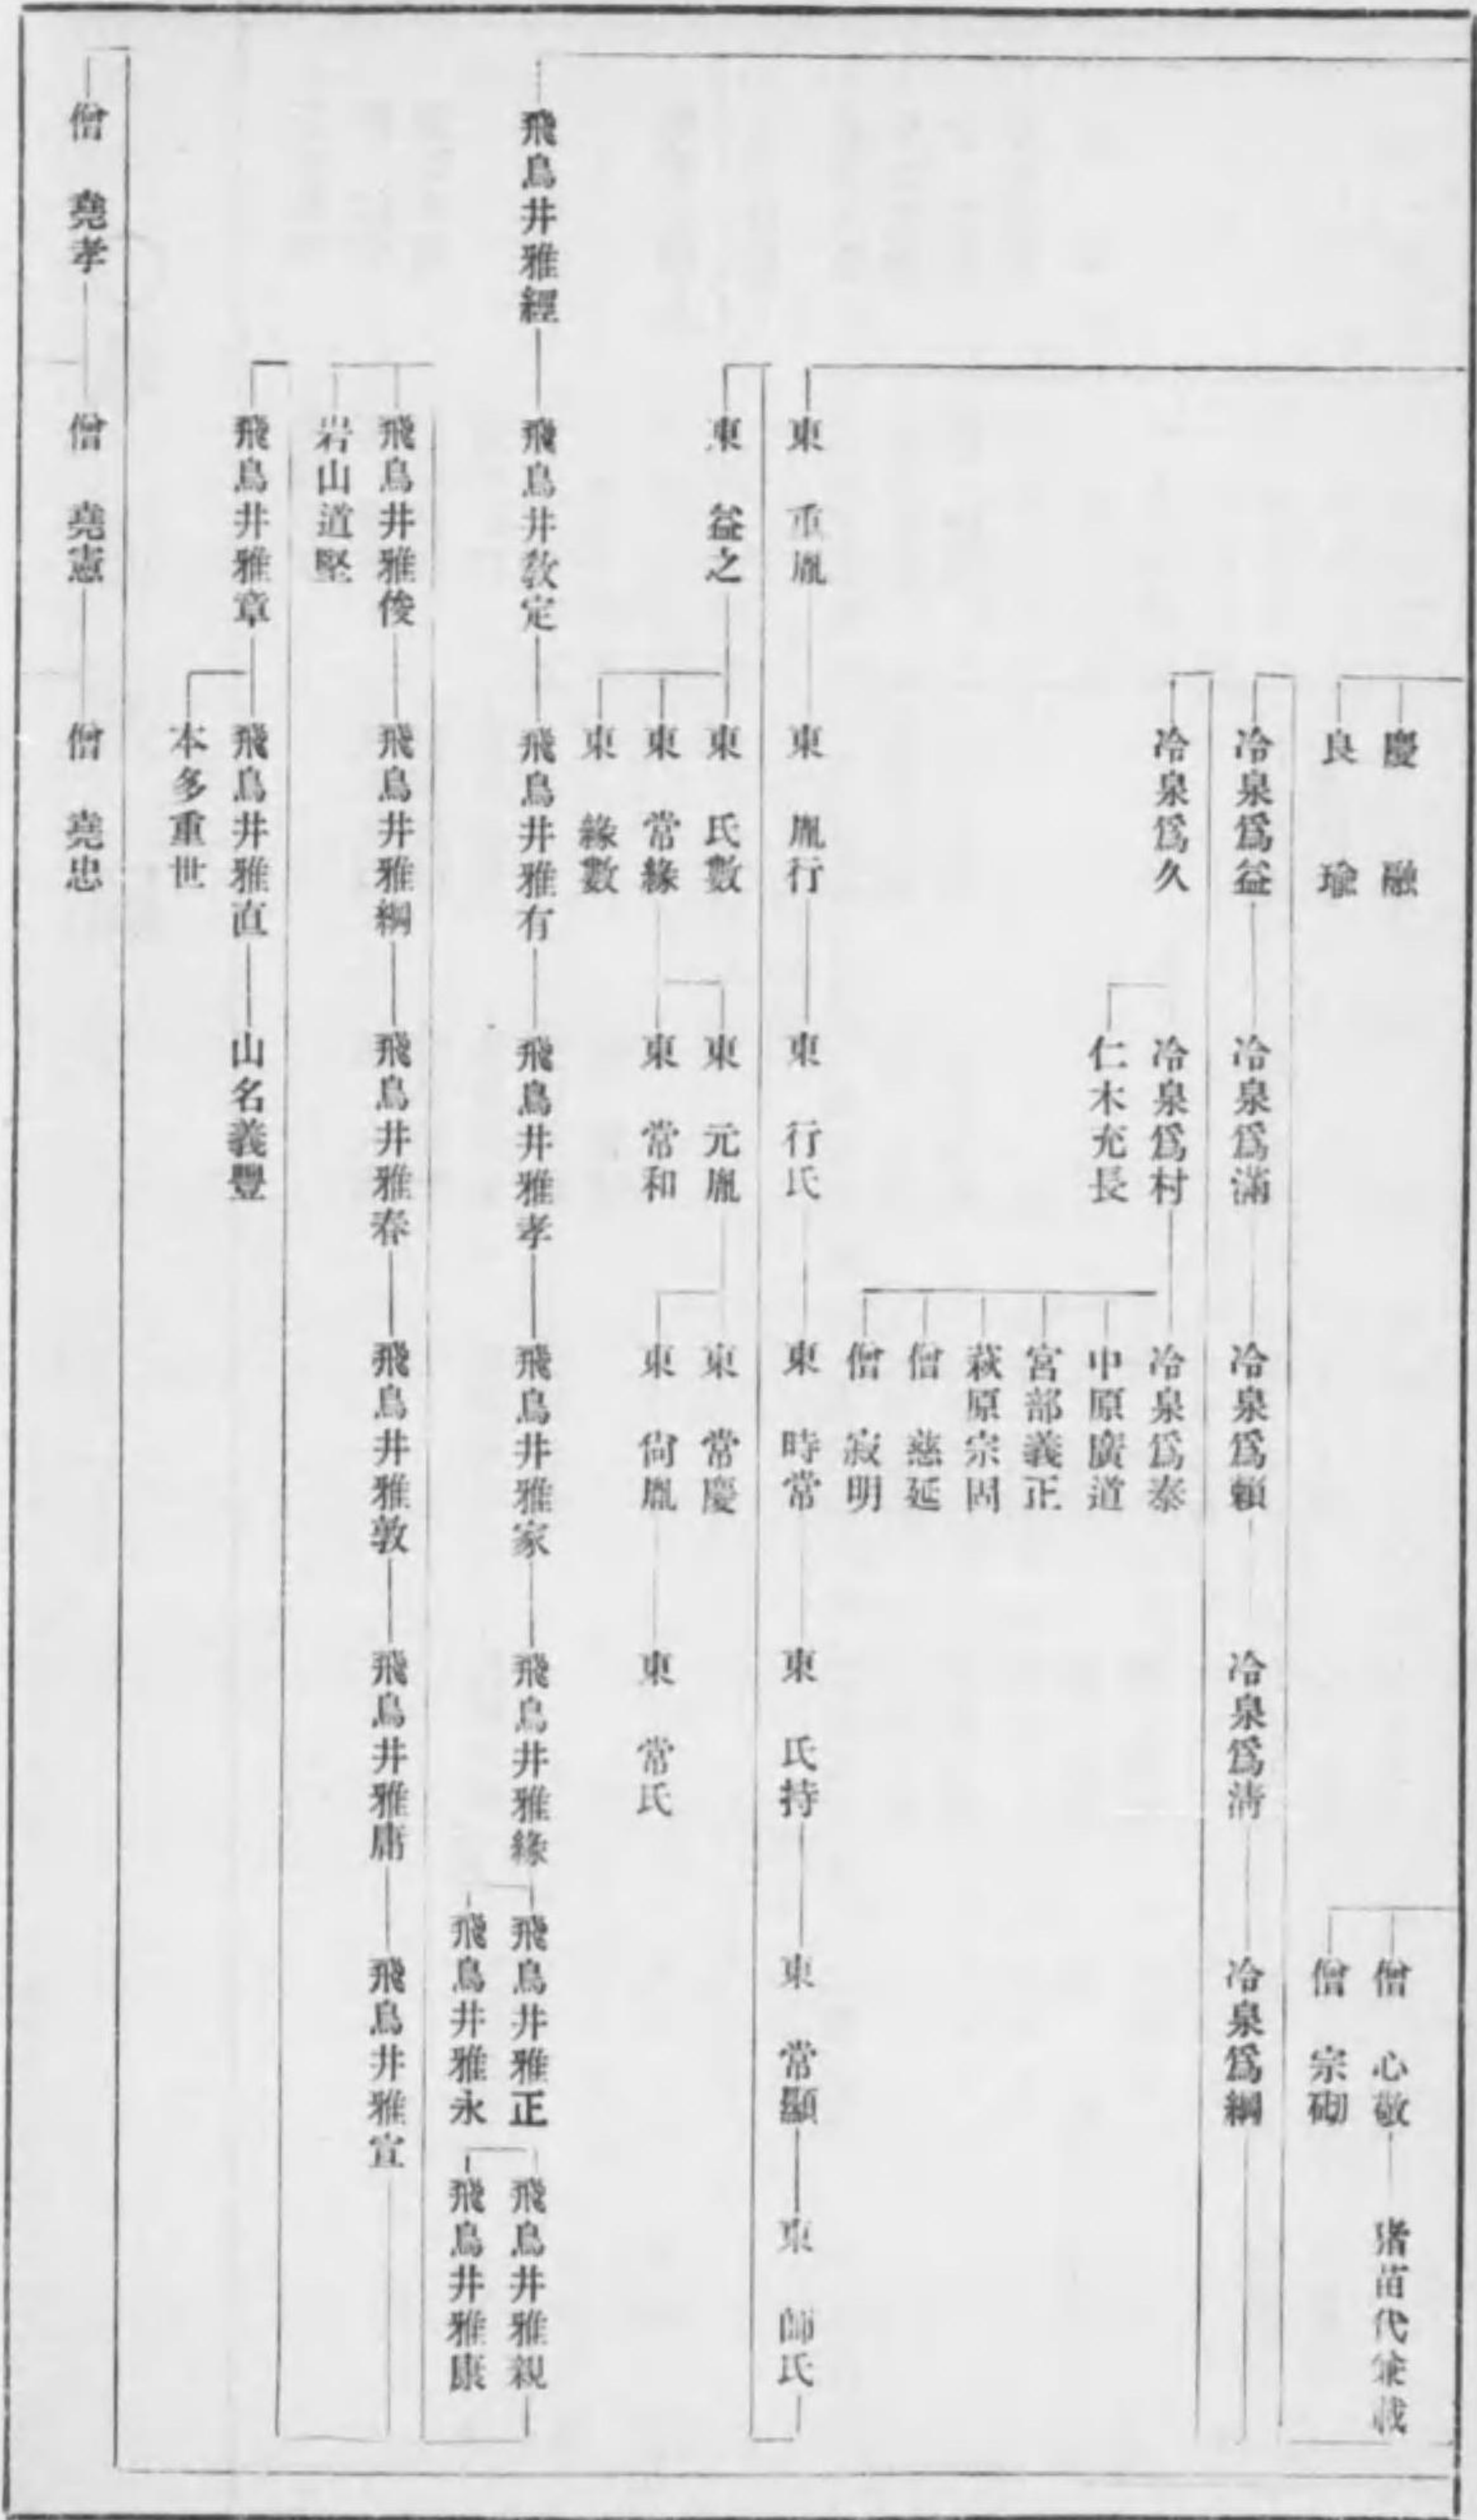 慶融
良瑜
僧 心敬
猪苗代兼載
僧 宗砌
冷泉爲益
冷泉爲滿
冷泉爲賴
冷泉爲淸
冷泉爲綱
冷泉爲久
冷泉爲村
仁木充長
冷泉爲泰
中原廣道
宮部義正
萩原宗固
僧 慈延
僧 寂明
東 重胤
東 胤行
東 行氏
東 時常
東 氏持
東 常顯
東 師氏
東 益之
東 氏數
東 常緣
東 緣數
東 元胤
東 常和
東 常慶
東 尙胤
東 常氏
飛鳥井雅經
飛鳥井敎定
飛鳥井雅有
飛鳥井雅孝
飛鳥井雅家
飛鳥井雅緣
飛鳥井雅正
飛鳥井雅永
飛鳥井雅親
飛鳥井雅康
飛鳥井雅俊
岩山道堅
飛鳥井雅綱
飛鳥井雅春
飛鳥井雅敦
飛鳥井雅庸
飛鳥井雅宣
飛鳥井雅章
飛鳥井雅直
本多重世
山名義豐
僧 堯孝
僧 堯憲
僧 堯忠